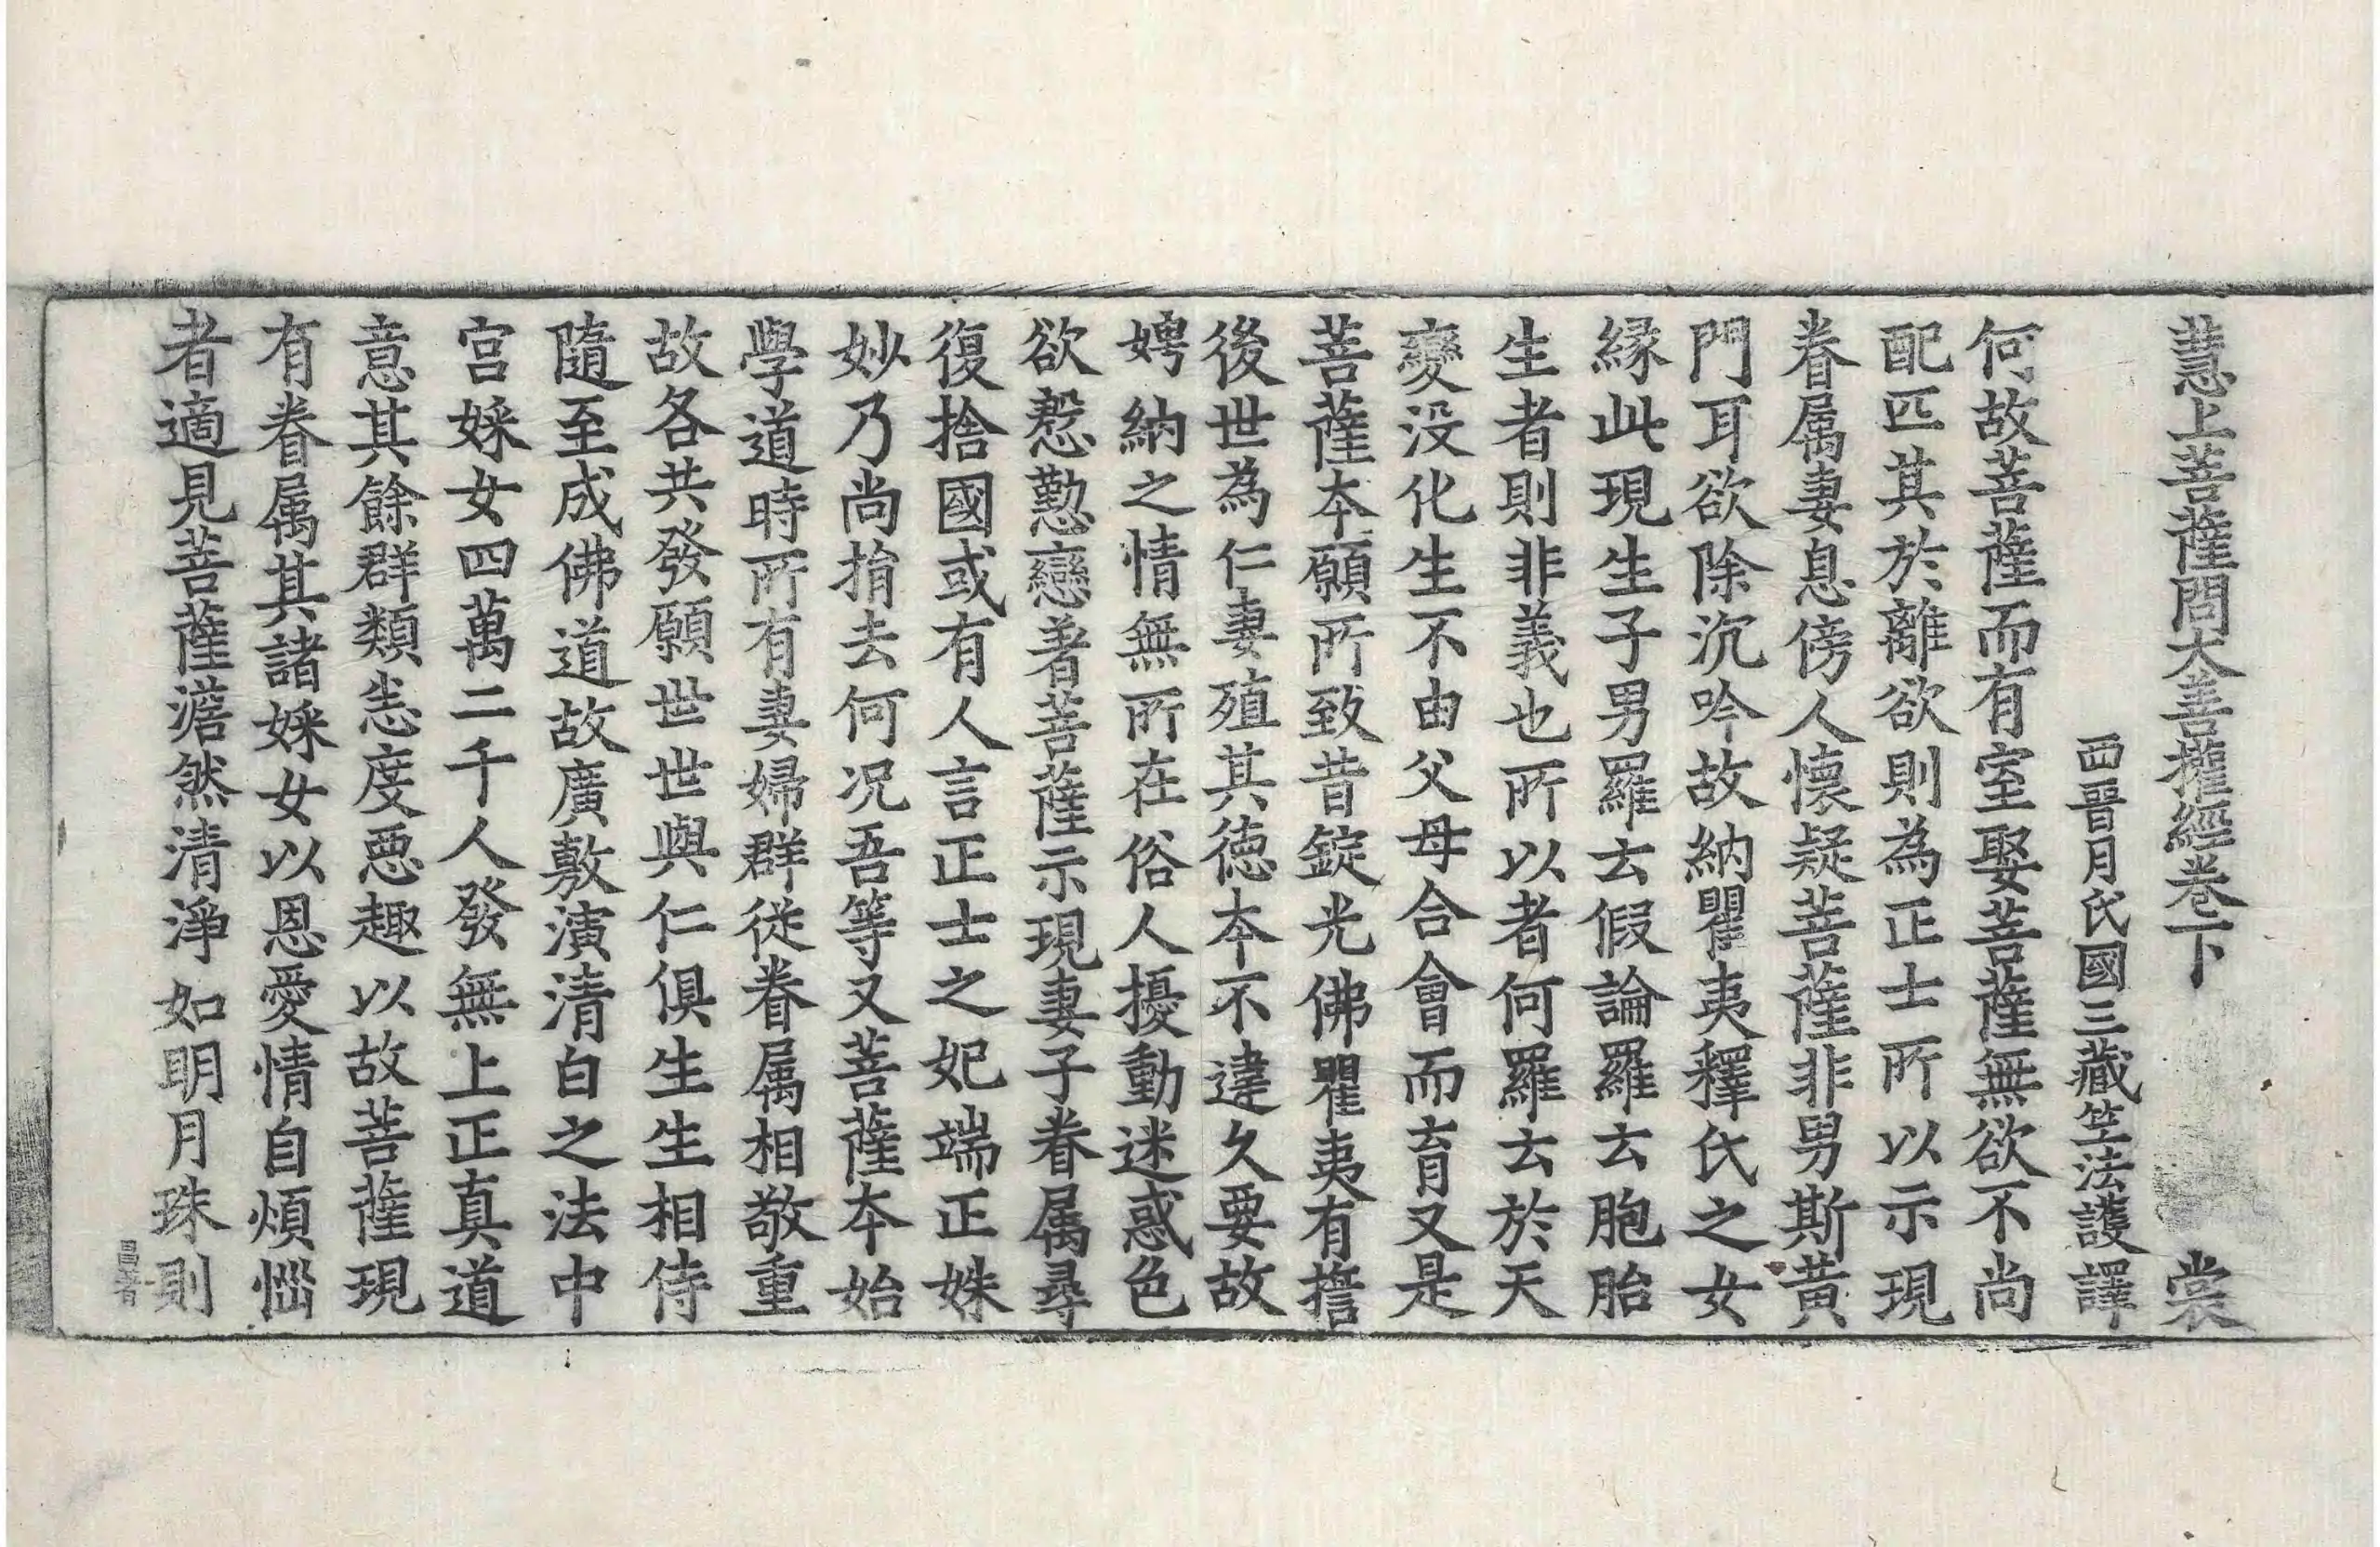 慧上菩薩問大善權經卷下 裳
西晉月氏國三藏竺法護譯
何故菩薩而有室娶菩薩無欲不尚
配匹其於離欲則為正士所以示現
眷属妻息傍人懷疑菩薩非男斯黃
門耳欲除沉吟故納瞿夷釋氏之女
縁此現生子男羅云假論羅云胞胎
生者則非義也所以者何羅云於天
變没化生不由父母合會而育又是
菩薩本願所致昔錠光佛瞿夷有誓
後世為仁妻殖其德本不違久要故
娉納之情無所在俗人擾動迷惑色
欲慇懃戀著菩薩示現妻子眷属尋
復捨國或有人言正士之妃端正姝
妙乃尚捐去何況吾等又菩薩本始
學道時所有妻婦群從眷属相敬重
故各共發願世世與仁俱生生相侍
隨至成佛道故廣敷演清白之法中
宫婇女四萬二千人發無上正真道
意其餘群類恙度惡趣以故菩薩現
有眷属其諸婇女以恩愛情自煩惱
者適見菩薩澹然清淨如明月珠則
昌著